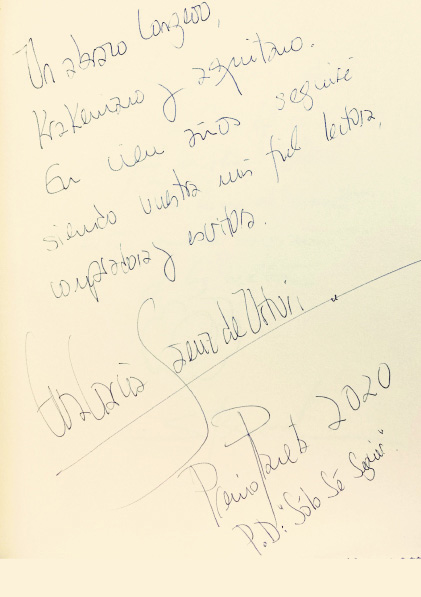 Un abrazo longevo,
Krakeniano y aquitano.
En cien años seguiré
siendo vuestra más fiel lectora,
compradora y escritora.
Eva García Saenz de Urturi.
Premio Planeta 2020
P.D: "Sólo Sé Seguir".